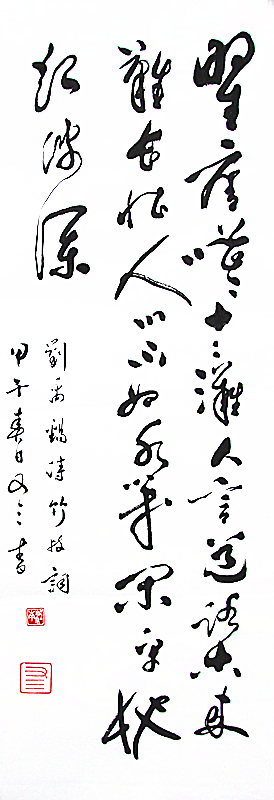 瞿塘嘈嘈十二灘人言道路古來
難長恨人心不如水等閑平地
起波瀾
劉禹錫詩竹枝詞
甲午春日書